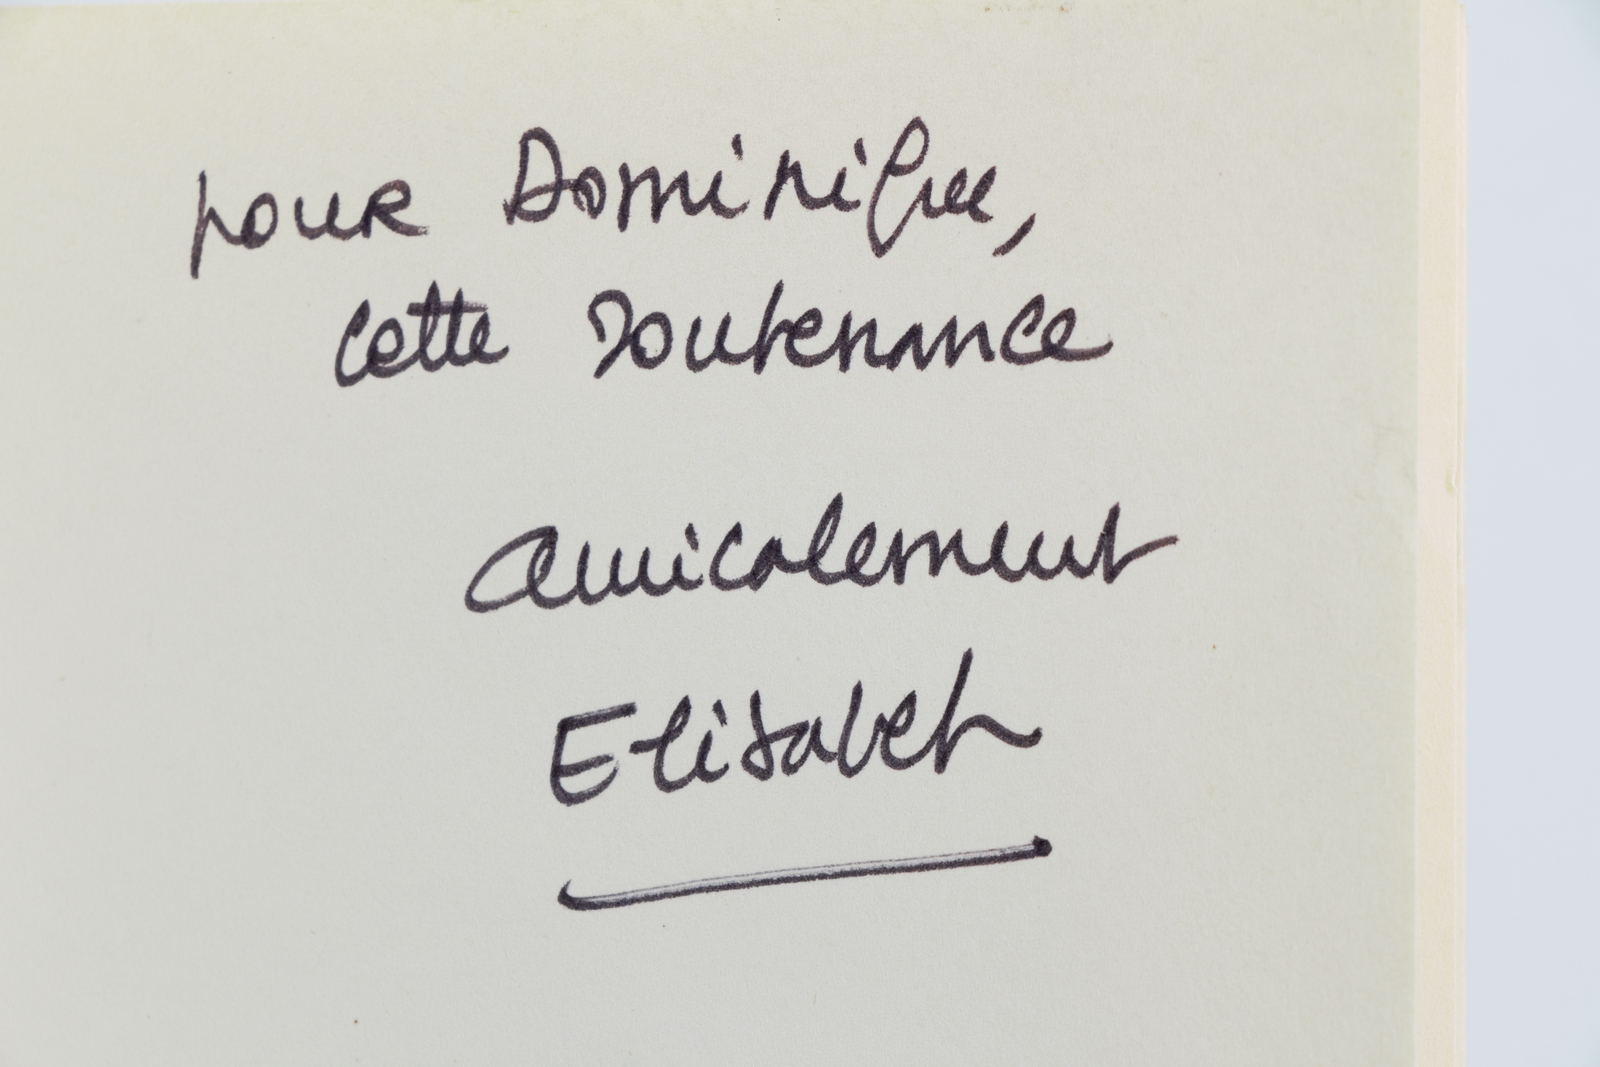 pour Dominique,
cette Soutenance
amicalement
Elisabeth